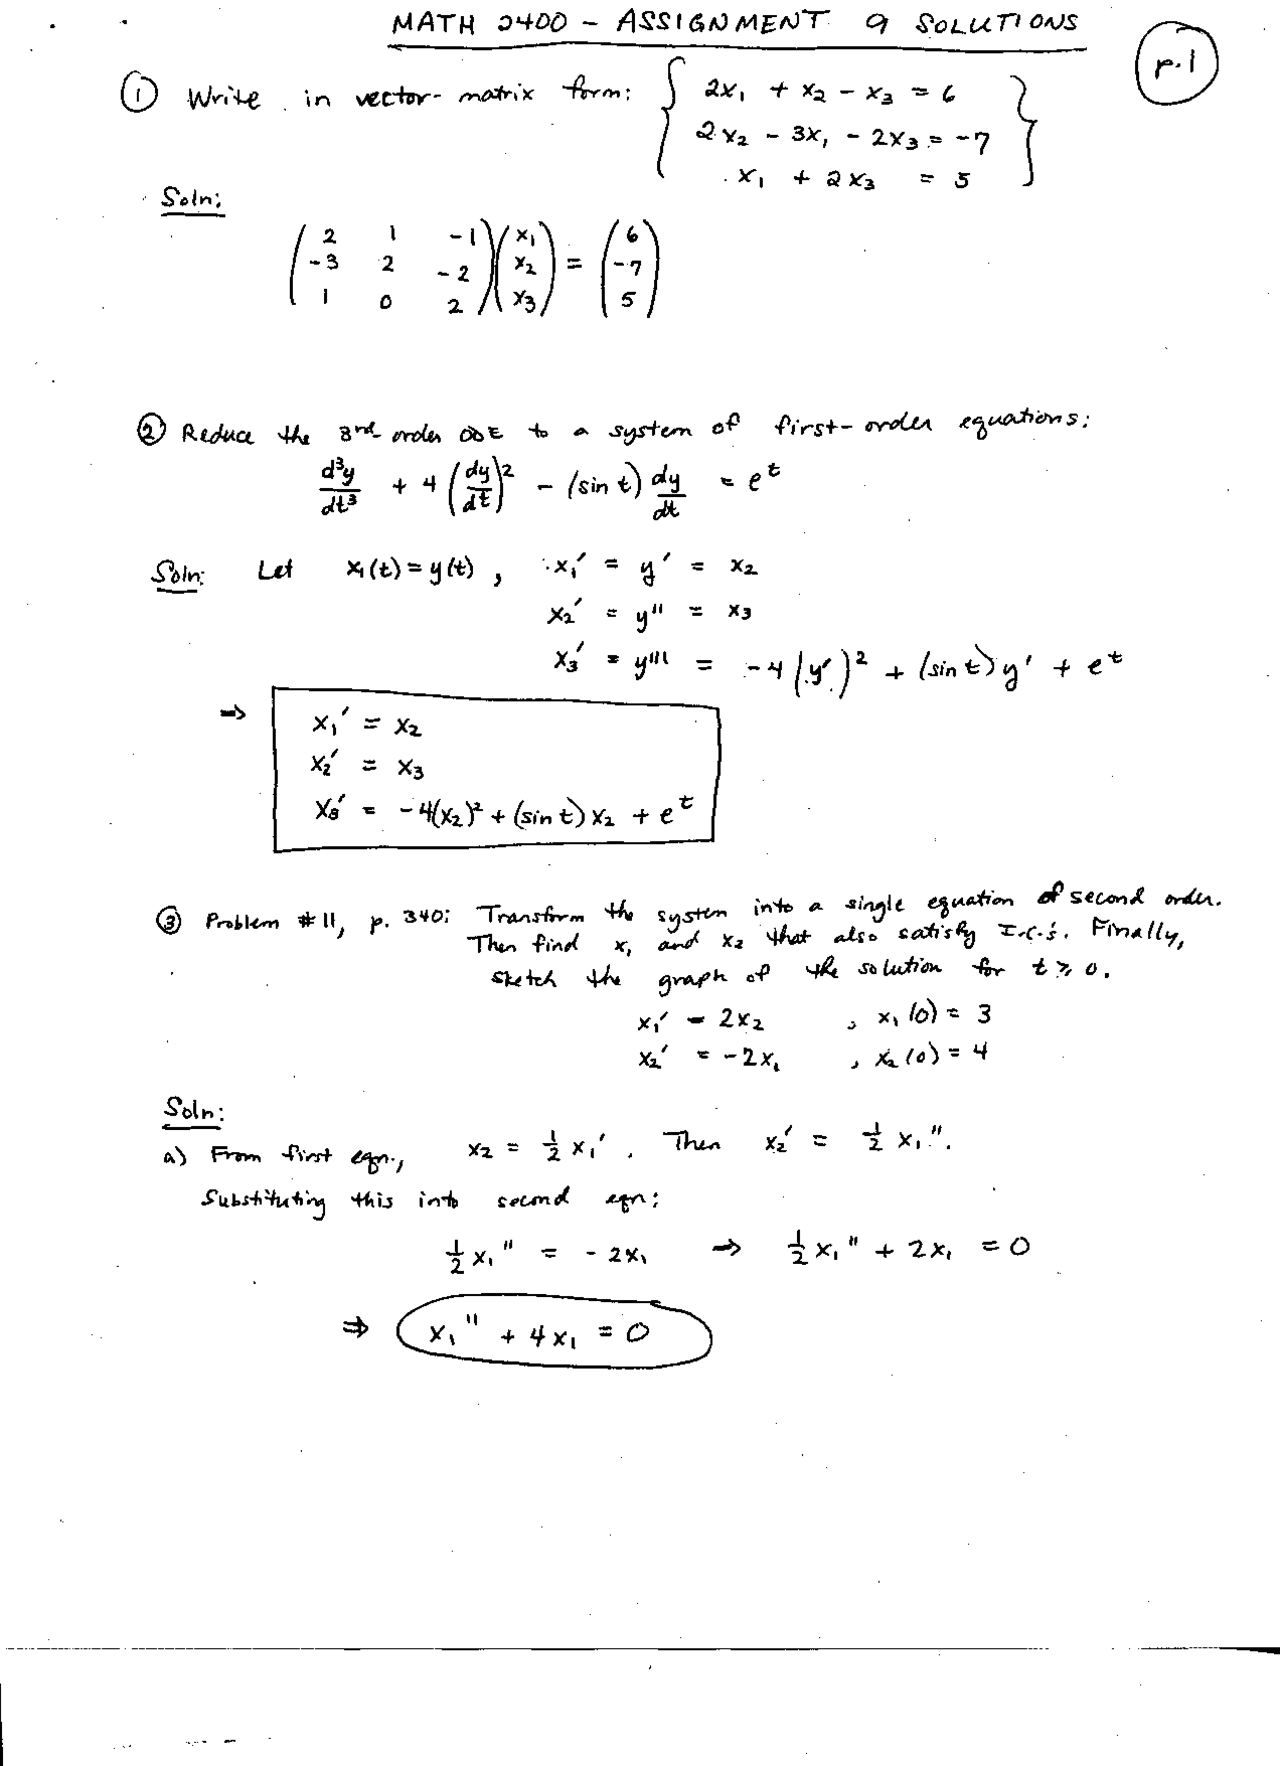 MATH 2400 - ASSIGNMENT 9 SOLUTIONS
p.1
① Write in vector-matrix form: { 2x₁ + x₂ - x₃ = 6
2x₂ - 3x₁ - 2x₃ = -7
x₁ + 2x₃ = 5 }
Soln:
( 2 1 -1 ) ( x₁ ) = ( 6 )
( -3 2 -2 ) ( x₂ ) ( -7 )
( 1 0 2 ) ( x₃ ) ( 5 )
② Reduce the 3rd order ODE to a system of first-order equations:
d³y/dt³ + 4(dy/dt)² - (sin t) dy/dt = eᵗ
Soln: Let x₁(t) = y(t), x₁' = y' = x₂
x₂' = y'' = x₃
x₃' = y''' = -4(y')² + (sin t)y' + eᵗ
⇒ x₁' = x₂
x₂' = x₃
x₃' = -4(x₂)² + (sin t)x₂ + eᵗ
③ Problem #11, p. 340: Transform the system into a single equation of second order.
Then find x₁ and x₂ that also satisfy I.C.'s. Finally,
sketch the graph of the solution for t ≥ 0.
x₁' = 2x₂ , x₁(0) = 3
x₂' = -2x₁ , x₂(0) = 4
Soln:
a) From first eqn., x₂ = ½ x₁'. Then x₂' = ½ x₁''.
Substituting this into second eqn:
½ x₁'' = -2x₁ ⇒ ½ x₁'' + 2x₁ = 0
⇒ x₁'' + 4x₁ = 0